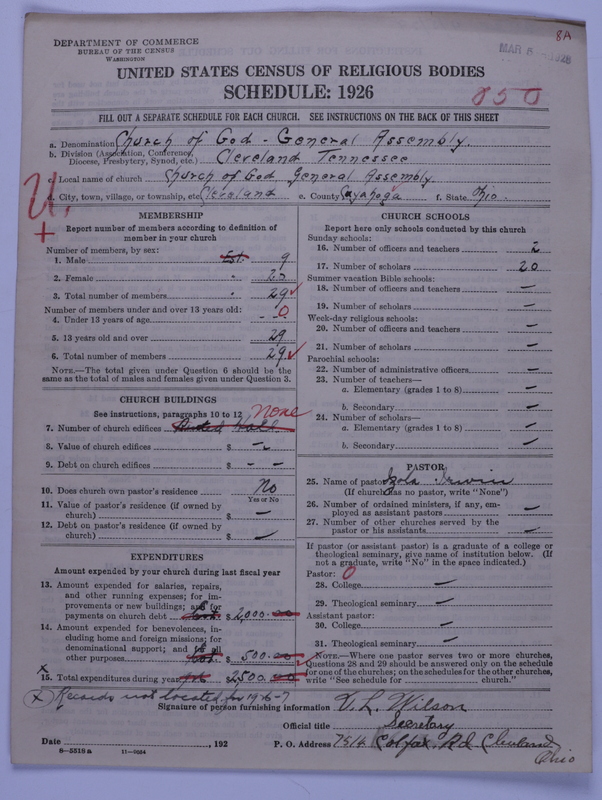 8A
DEPARTMENT OF COMMERCE
BUREAU OF THE CENSUS
WASHINGTON
MAR 8 1928
UNITED STATES CENSUS OF RELIGIOUS BODIES
SCHEDULE: 1926
850
FILL OUT A SEPARATE SCHEDULE FOR EACH CHURCH. SEE INSTRUCTIONS ON THE BACK OF THIS SHEET
a. Denomination Church of God - General Assembly.
b. Division (Association, Conference, Diocese, Presbytery, Synod, etc.) Cleveland Tennessee
c. Local name of church Church of God General Assembly.
d. City, town, village, or township, etc. Cleveland e. County Cuyahoga f. State Ohio.
U.
+
MEMBERSHIP
Report number of members according to definition of
member in your church
Number of members, by sex:
1. Male Est. 9
2. Female " 20
3. Total number of members " 29
Number of members under and over 13 years old:
4. Under 13 years of age - - 0
5. 13 years old and over 29
6. Total number of members 29
NOTE.—The total given under Question 6 should be the
same as the total of males and females given under Question 3.
CHURCH BUILDINGS
See instructions, paragraphs 10 to 12 none
7. Number of church edifices Rented Hall
8. Value of church edifices $ -
9. Debt on church edifices $ - -
10. Does church own pastor's residence No
Yes or No
11. Value of pastor's residence (if owned by
church) $ -
12. Debt on pastor's residence (if owned by
church) $ -
EXPENDITURES
Amount expended by your church during last fiscal year
13. Amount expended for salaries, repairs,
and other running expenses; for im-
provements or new buildings; and for
payments on church debt Est. $ 2,000.00
14. Amount expended for benevolences, in-
cluding home and foreign missions; for
denominational support; and for all
other purposes Est. $ 500.00
x
15. Total expenditures during year 2500.00
(x) Records not located for 1926-7
CHURCH SCHOOLS
Report here only schools conducted by this church
Sunday schools:
16. Number of officers and teachers 2
17. Number of scholars 20
Summer vacation Bible schools:
18. Number of officers and teachers -
19. Number of scholars -
Week-day religious schools:
20. Number of officers and teachers -
21. Number of scholars -
Parochial schools:
22. Number of administrative officers -
23. Number of teachers—
a. Elementary (grades 1 to 8) -
b. Secondary -
24. Number of scholars—
a. Elementary (grades 1 to 8) -
b. Secondary -
PASTOR
25. Name of pastor Izola Irwin
(If church has no pastor, write "None")
26. Number of ordained ministers, if any, em-
ployed as assistant pastors -
27. Number of other churches served by the
pastor or his assistants -
If pastor (or assistant pastor) is a graduate of a college or
theological seminary, give name of institution below. (If
not a graduate, write "No" in the space indicated.)
Pastor: 0
28. College -
29. Theological seminary -
Assistant pastor:
30. College -
31. Theological seminary -
NOTE.—Where one pastor serves two or more churches,
Questions 28 and 29 should be answered only on the schedule
for one of the churches; on the schedules for the other churches,
write "See schedule for church."
Signature of person furnishing information V. L. Wilson
Official title Secretary
Date , 192 P. O. Address 7514 Colfax Rd Cleveland
Ohio
8—5518a 11—9684